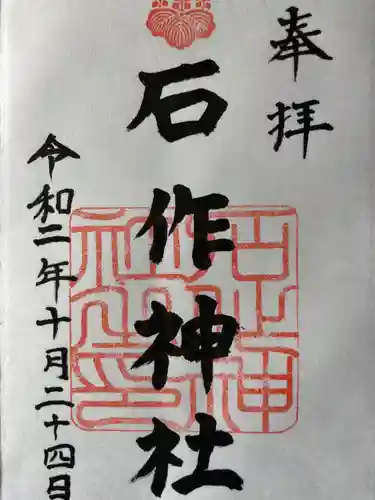 奉拝
石作神社
令和二年十月二十四日